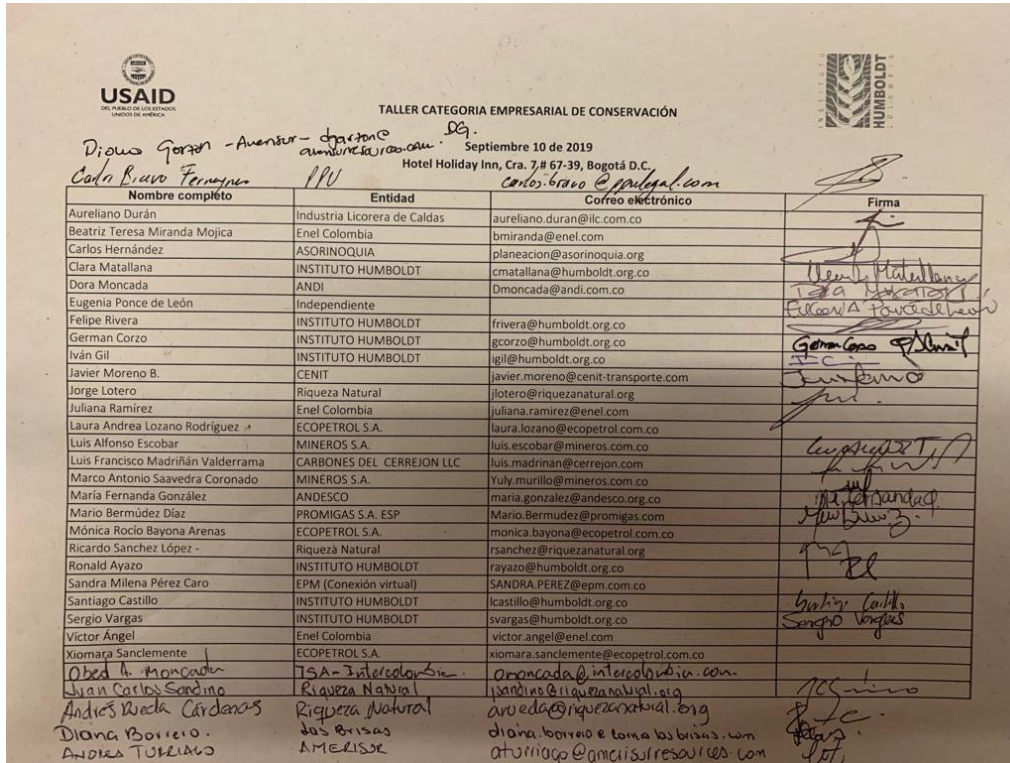 USAID
DEL PUEBLO DE LOS ESTADOS
UNIDOS DE AMÉRICA
INSTITUTO
HUMBOLDT
COLOMBIA
TALLER CATEGORIA EMPRESARIAL DE CONSERVACIÓN
DG.
Septiembre 10 de 2019
Hotel Holiday Inn, Cra. 7 # 67-39, Bogotá D.C.
Carlos Bravo PPU carlos.bravo@ppulegal.com
Nombre completo Entidad Correo electrónico Firma
Aureliano Durán Industria Licorera de Caldas aureliano.duran@ilc.com.co
Beatriz Teresa Miranda Mojica Enel Colombia bmiranda@enel.com
Carlos Hernández ASORINOQUIA planeacion@asorinoquia.org
Clara Matallana INSTITUTO HUMBOLDT cmatallana@humboldt.org.co Matallana
Dora Moncada ANDI Dmoncada@andi.com.co
Eugenia Ponce de León Independiente Eugenia Ponce de León
Felipe Rivera INSTITUTO HUMBOLDT frivera@humboldt.org.co
German Corzo INSTITUTO HUMBOLDT gcorzo@humboldt.org.co German Corzo
Iván Gil INSTITUTO HUMBOLDT igil@humboldt.org.co
Javier Moreno B. CENIT javier.moreno@cenit-transporte.com
Jorge Lotero Riqueza Natural jlotero@riquezanatural.org
Juliana Ramírez Enel Colombia juliana.ramirez@enel.com
Laura Andrea Lozano Rodríguez ECOPETROL S.A. laura.lozano@ecopetrol.com.co
Luis Alfonso Escobar MINEROS S.A. luis.escobar@mineros.com.co
Luis Francisco Madriñán Valderrama CARBONES DEL CERREJON LLC luis.madrinan@cerrejon.com
Marco Antonio Saavedra Coronado MINEROS S.A. Yuly.murillo@mineros.com.co
María Fernanda González ANDESCO maria.gonzalez@andesco.org.co
Mario Bermúdez Díaz PROMIGAS S.A. ESP Mario.Bermudez@promigas.com
Mónica Rocío Bayona Arenas ECOPETROL S.A. monica.bayona@ecopetrol.com.co
Ricardo Sanchez López - Riqueza Natural rsanchez@riquezanatural.org
Ronald Ayazo INSTITUTO HUMBOLDT rayazo@humboldt.org.co
Sandra Milena Pérez Caro EPM (Conexión virtual) SANDRA.PEREZ@epm.com.co
Santiago Castillo INSTITUTO HUMBOLDT lcastillo@humboldt.org.co Santiago Castillo
Sergio Vargas INSTITUTO HUMBOLDT svargas@humboldt.org.co Sergio Vargas
Víctor Ángel Enel Colombia victor.angel@enel.com
Xiomara Sanclemente ECOPETROL S.A. xiomara.sanclemente@ecopetrol.com.co
Obed A. Moncada ISA-Intercolombia. omoncada@intercolombia.com
Juan Carlos Sandino Riqueza Natural jsandino@riquezanatural.org
Andrés Rueda Cárdenas Riqueza Natural arueda@riquezanatural.org
Diana Borrero. Las Brisas
ANDRES TURRIAGO AMERISUR aturriago@amerisurresources.com